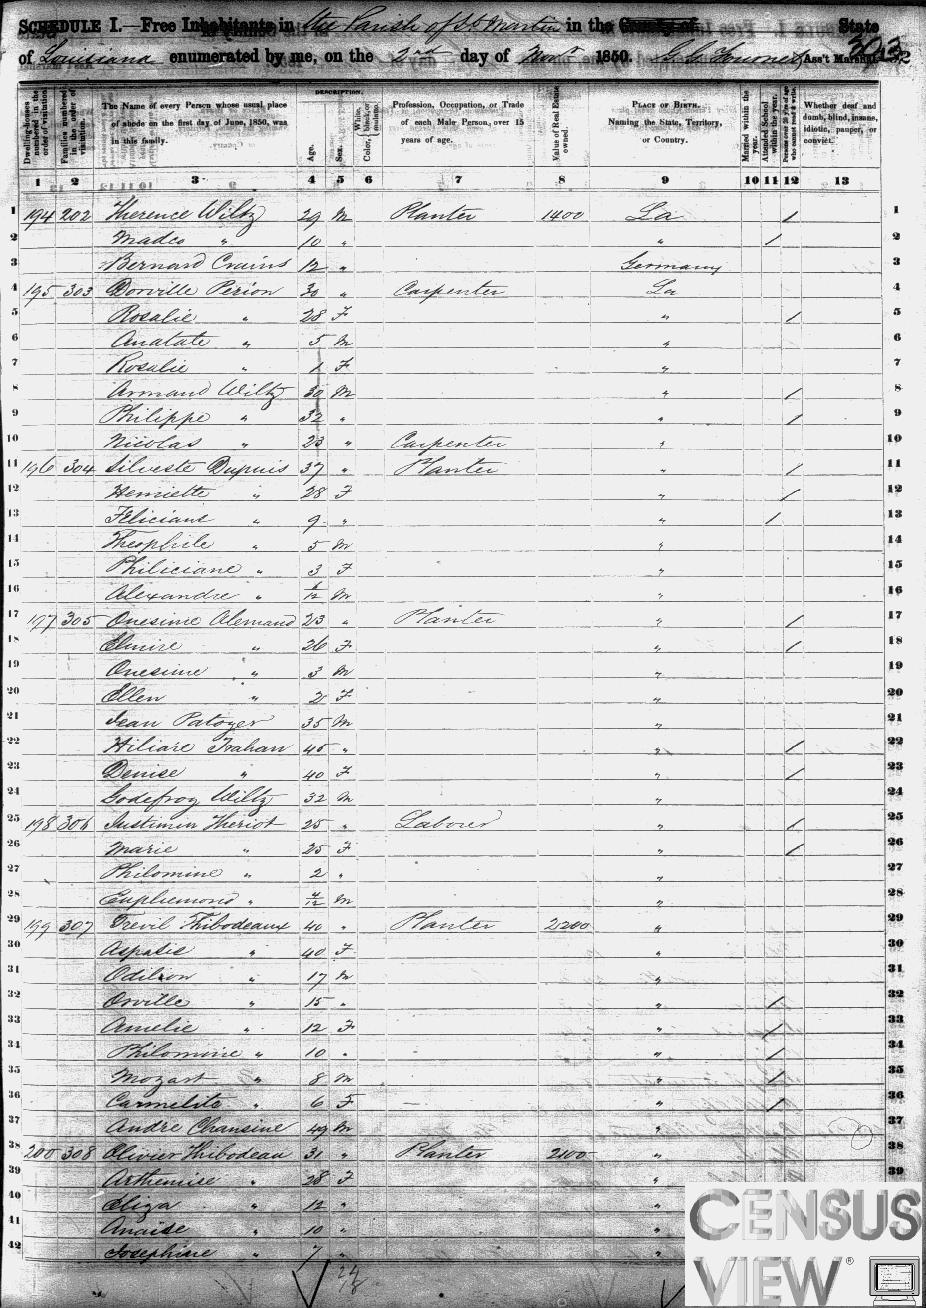 SCHEDULE I.—Free Inhabitants in the Parish of St Martin in the County of State
of Louisiana enumerated by me, on the 2nd day of Novr 1850. Ass't Marshal.
DESCRIPTION.
Dwelling-houses numbered in the order of visitation. Families numbered in the order of visitation. The Name of every Person whose usual place of abode on the first day of June, 1850, was in this family. Age. Sex. Color, White, black, or mulatto. Profession, Occupation, or Trade of each Male Person, over 15 years of age. Value of Real Estate owned. PLACE OF BIRTH. Naming the State, Territory, or Country. Married within the year. Attended School within the year. Persons over 20 y'rs of age who cannot read & write. Whether deaf and dumb, blind, insane, idiotic, pauper, or convict.
1 2 3 4 5 6 7 8 9 10 11 12 13
1 194 202 Therence Wiltz 29 M Planter 1400 La / 1
2 Madeo " 10 " " / 2
3 Bernard Crains 12 " Germany 3
4 195 303 Dorville Perion 30 " Carpenter La 4
5 Rosalie " 28 F " / 5
6 Anatate " 5 M " 6
7 Rosalie " 1 F " 7
8 Armand Wiltz 30 M " / 8
9 Philippe " 32 " " / 9
10 Nicolas " 23 " Carpenter " 10
11 196 304 Silveste Dupuis 37 " Planter " / 11
12 Henriette " 28 F " / 12
13 Feliciant " 9 " " / 13
14 Theophile " 5 M " 14
15 Philiciane " 3 F " 15
16 Alexandre " M " 16
17 197 305 Onesime Alemand 23 " Planter " / 17
18 Elmire " 26 F " / 18
19 Onesime " 3 M " 19
20 Ellen " 2 F " 20
21 Jean Patozer 35 M " 21
22 Hiliare Trahan 45 " " / 22
23 Denise " 40 F " / 23
24 Godefroy Wiltz 32 M " 24
25 198 306 Justinin Theriot 25 " Laborer " / 25
26 Marie " 25 F " / 26
27 Philomine " 2 " " 27
28 Euphemond " 4/12 M " 28
29 199 307 Trevil Thibodeaux 40 " Planter 2200 " 29
30 Aspasie " 40 F " 30
31 Odilion " 17 M " 31
32 Orville " 15 " " / 32
33 Amelie " 12 F " / 33
34 Philomine " 10 " " / 34
35 Mozart " 8 M " / 35
36 Carmelite " 6 F " / 36
37 Andre Chansine 49 M " 37
38 200 308 Olivier Thibodeau 31 " Planter 2100 " 38
39 Arthemise " 28 F " 39
40 Eliza " 12 " "
41 Anaise " 10 " "
42 Josephine " 7 " "
CENSUS
VIEW®